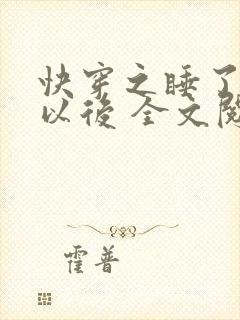 快穿之睡了
以後 全文閱
霍普